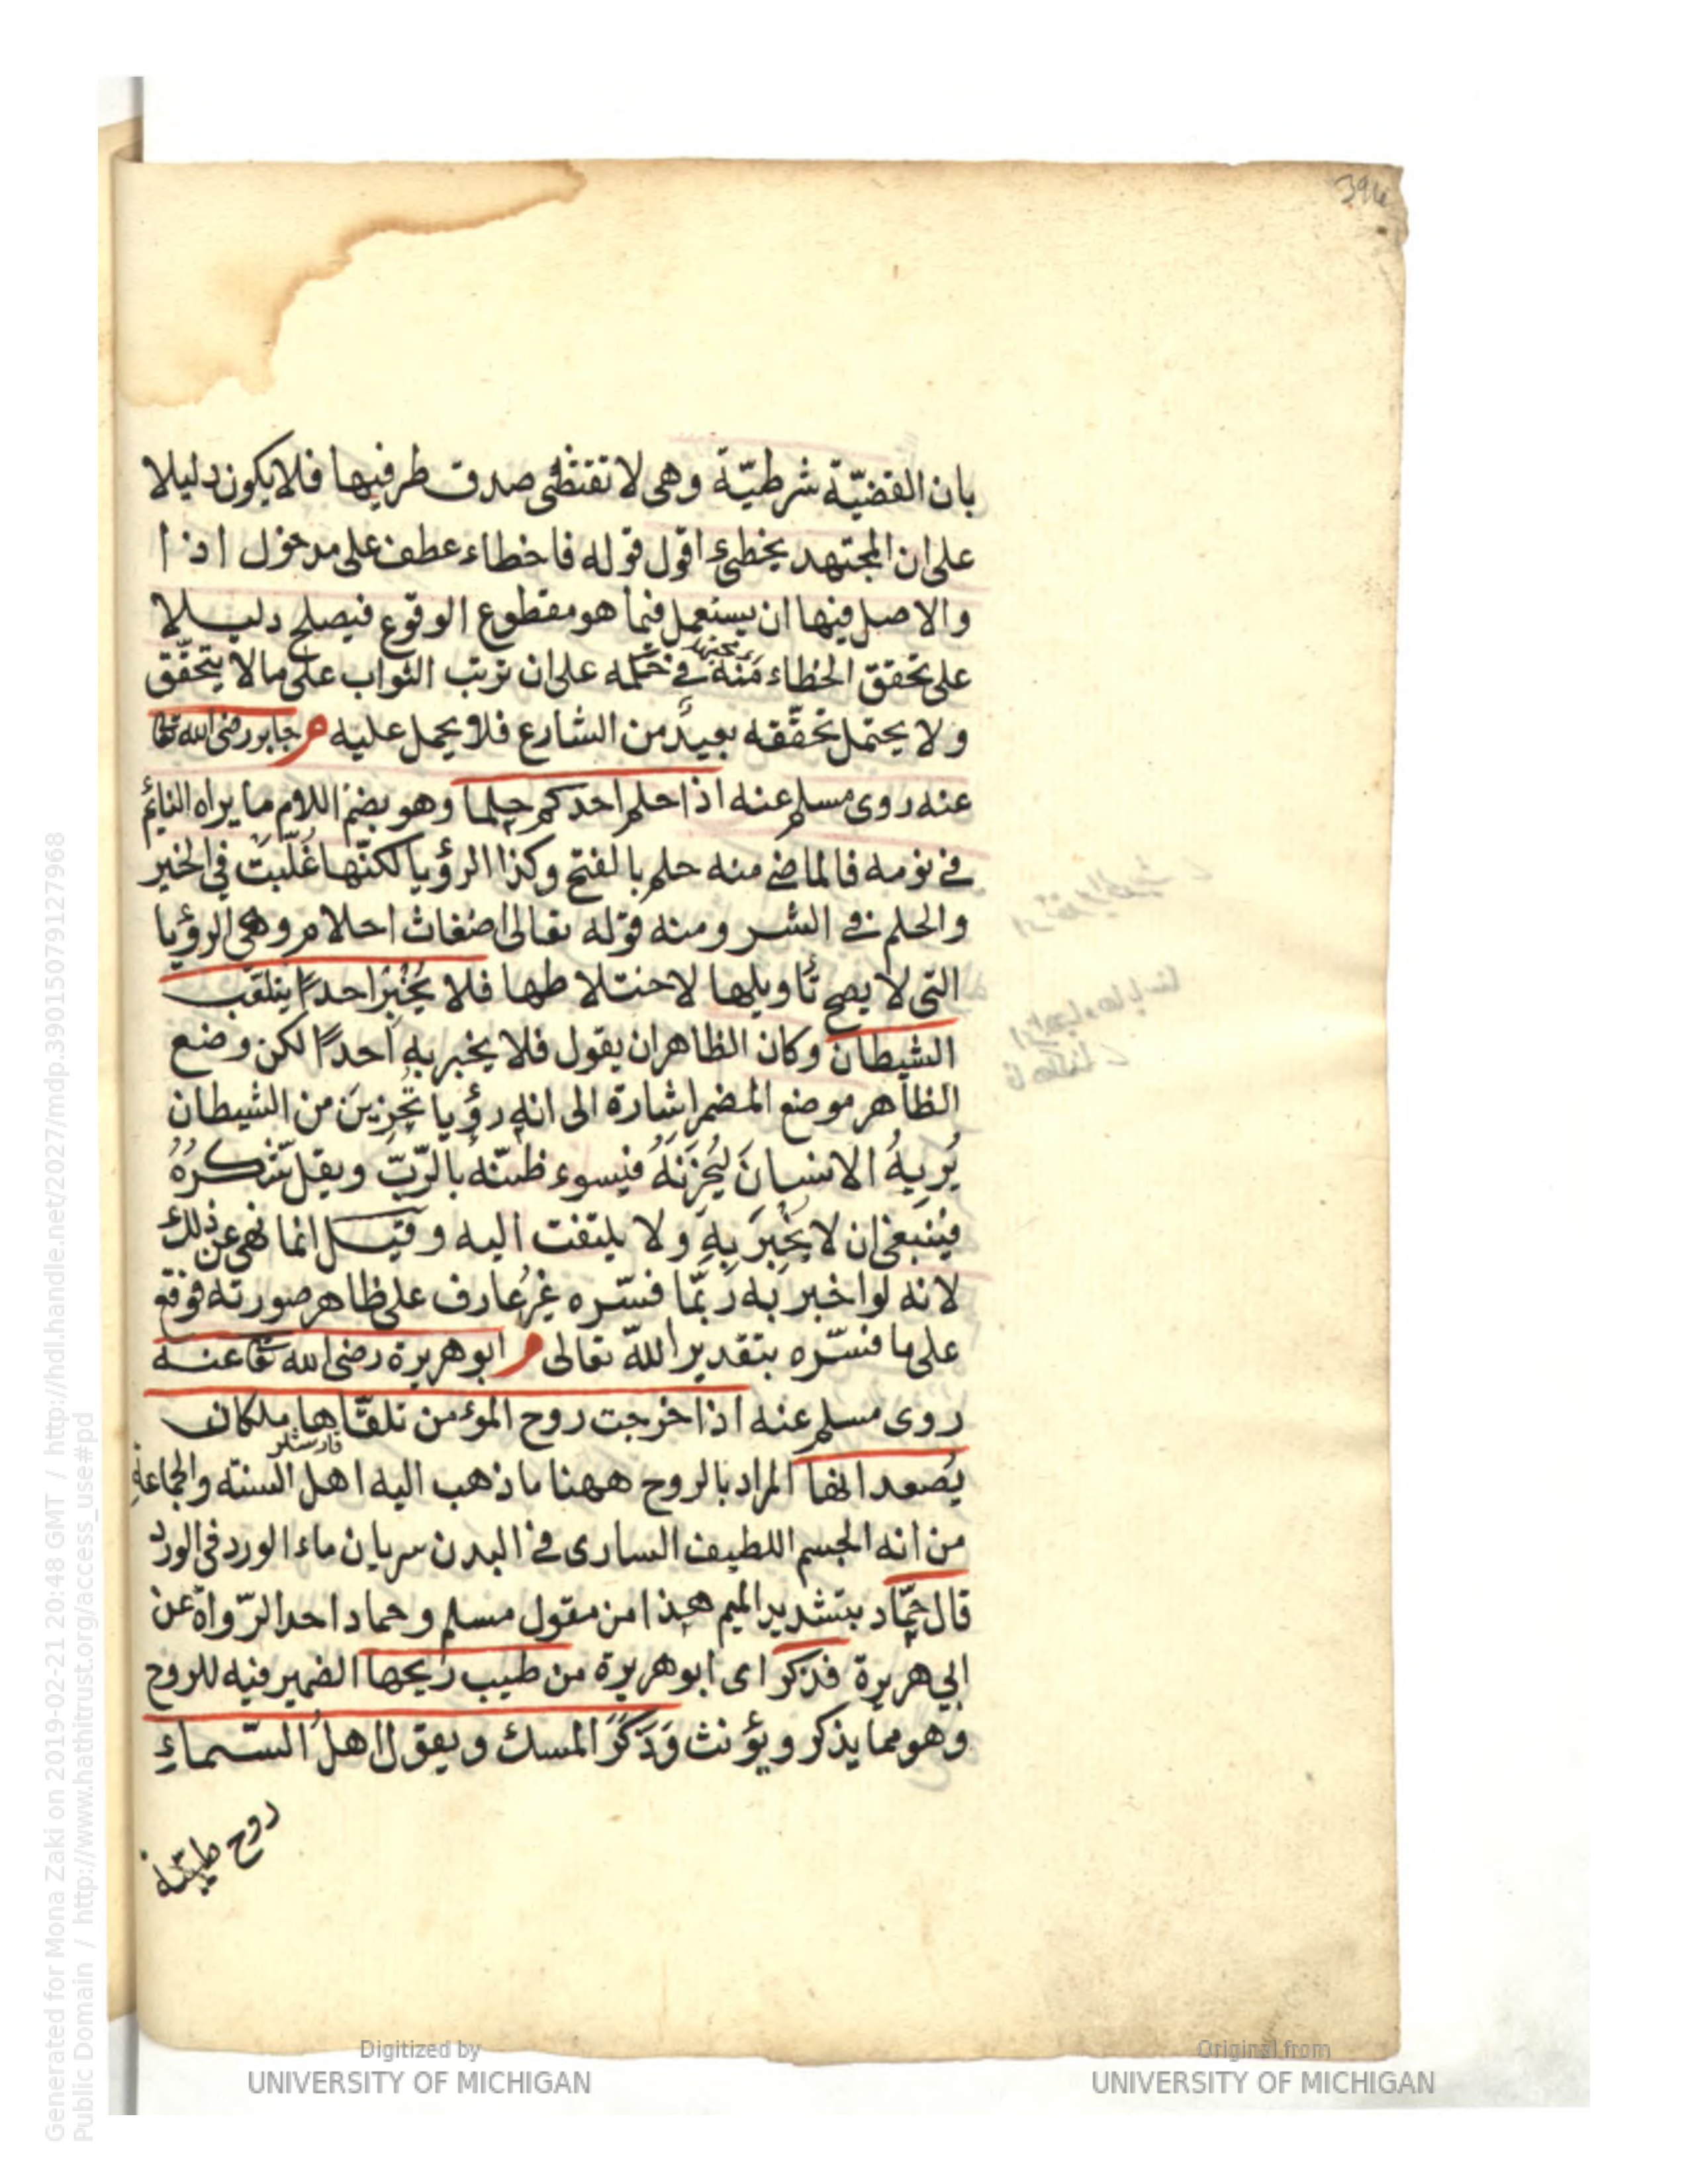 394
بان القضيّة شرطيّة وهى لا تقتضى صدق طرفيها فلا يكون دليلا
على ان المجتهد يخطئ اقول قوله فاخطاء عطف على مدخول اذا
والاصل فيها ان يستعمل فيما هو مقطوع الوقوع فيصلح دليلا
على تحقق الخطاء منه فى حكمه على ان ترتب الثواب على ما لا يتحقّق
ولا يحتمل تحقّقه بعيدٌ من الشارع فلا يحمل عليه م جابر رضى الله تعا
عنه روى مسلم عنه اذا حلم احدكم حلما وهو بضم اللام ما يراه النائم
فى نومه فالماضى منه حلم بالفتح وكذا الرؤيا لكنّها غُلّبت فى الخير
والحلم فى الشر ومنه قوله تعالى اضغاث احلام وهى الرؤيا
التى لا يصح تأويلها لاختلاطها فلا يُخْبِرْ احدًا بتلعّب
الشيطان وكان الظاهر ان يقول فلا يخبر به احدًا لكن وضع
الظاهر موضع المضمر اشارة الى انه رؤيا تحزين من الشيطان
يُرِيهُ الانسانَ ليُحزنَهُ فيسوء ظنّهُ بالرّبّ ويقلّ شكرُهُ
فينبغى ان لا يُخْبِرَ بهِ ولا يلتفت اليه وقيل انما نهى عن ذلك
لانه لو اخبر به ربّما فسّره غيرُ عارف على ظاهر صورته فوقع
على ما فسّره بتقدير الله تعالى م ابو هريرة رضى الله تعا عنه
روى مسلم عنه اذا خرجت روح المؤمن تلقّاها ملكان
يُصعدانها المراد بالروح ههنا ما ذهب اليه اهل السنة والجماعة
من انه الجسم اللطيف السارى فى البدن سريان ماء الورد فى الورد
قال حمّاد بتشديد الميم هذا من مقول مسلم وحماد احد الرّواة عن
ابى هريرة فذكر اى ابو هريرة من طيب ريحها الضمير فيه للروح
وهو مما يذكر ويؤنث وَذَكَرَ المسك ويقول اهلُ السّماءِ
روح طيّبة
Generated for Mona Zaki on 2019-02-21 20:48 GMT / http://hdl.handle.net/2027/mdp.39015079127968
Public Domain / http://www.hathitrust.org/access_use#pd
Digitized by
UNIVERSITY OF MICHIGAN
Original from
UNIVERSITY OF MICHIGAN